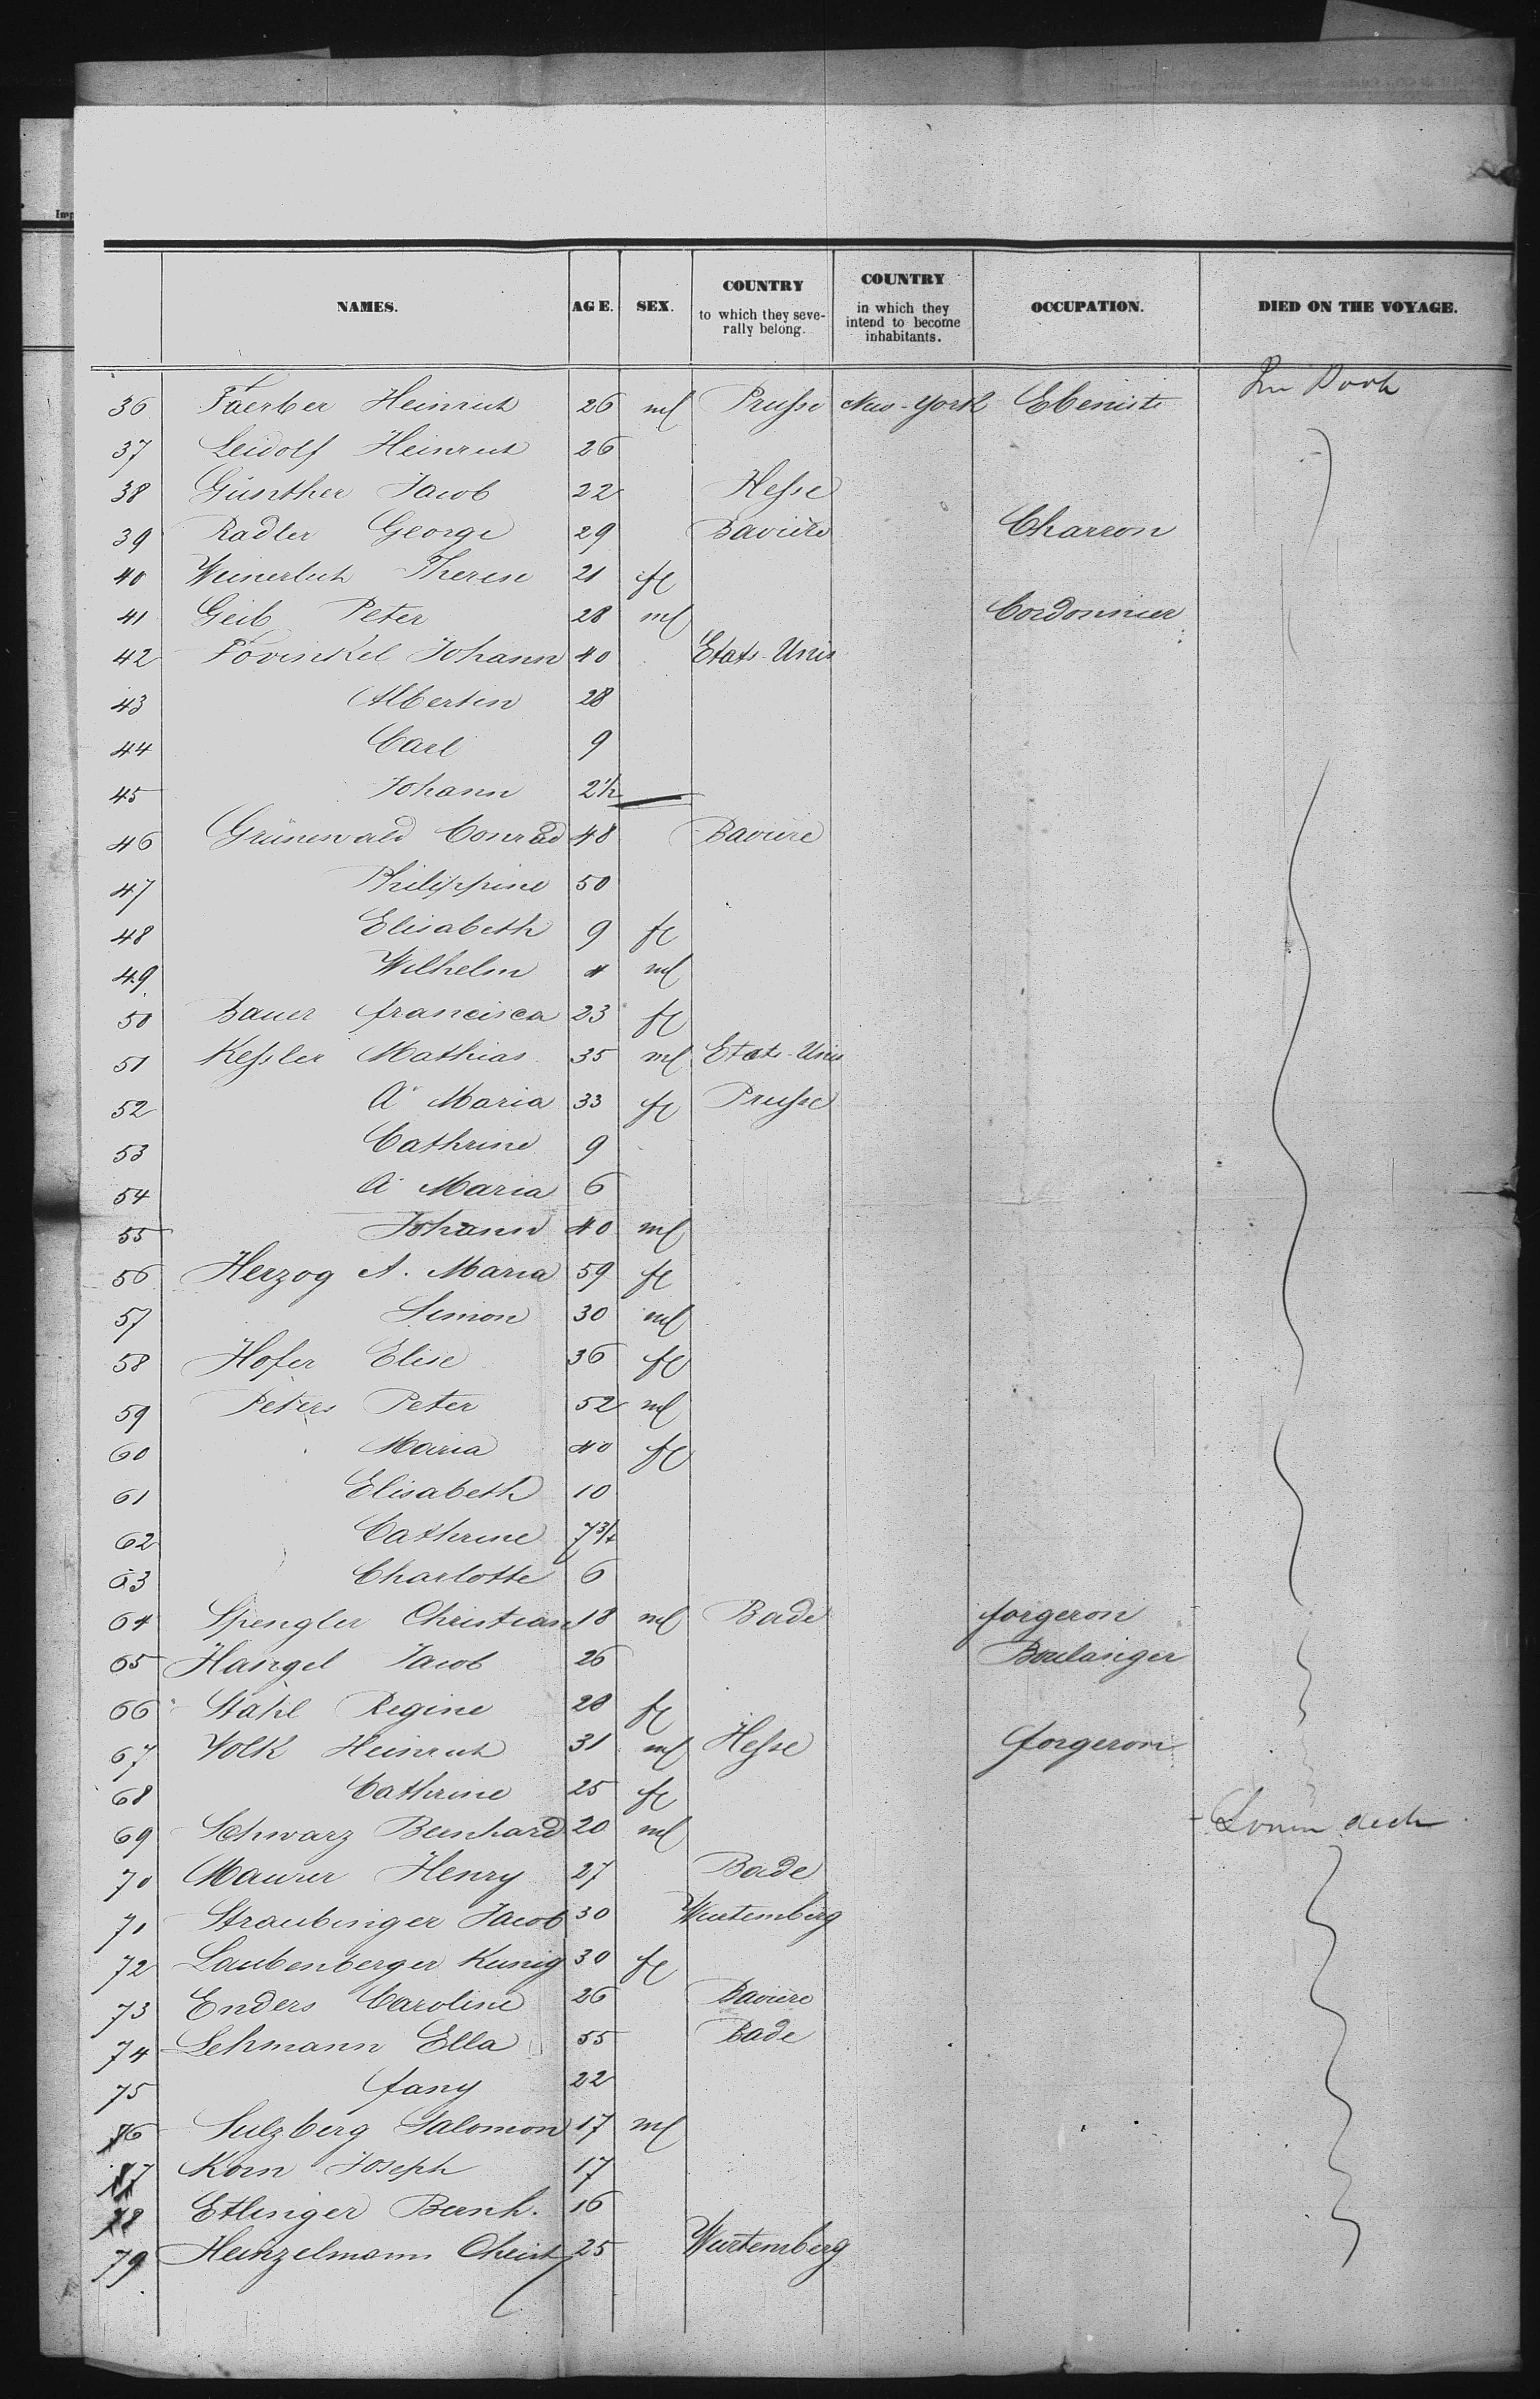 Imp
NAMES. AGE. SEX. COUNTRY to which they severally belong. COUNTRY in which they intend to become inhabitants. OCCUPATION. DIED ON THE VOYAGE.
36 Faerber Heinrich 26 ml Prusse New-York Ebeniste
37 Leidolf Heinrich 26
38 Günther Jacob 22 Hesse
39 Radler George 29 Bavière Charron
40 Weinerlich Therese 21 fe
41 Geib Peter 28 ml Cordonnier
42 Fovinkel Johann 40 Etats-Unis
43 Albertin 28
44 Carl 9
45 Johann 2½
46 Grünewald Conrad 48 Baviere
47 Philippine 50
48 Elisabeth 9 fe
49 Wilhelm 4 ml
50 Bauer francisca 23 fe
51 Kessler Mathias 35 ml Etats-Unis
52 A Maria 33 fe Prusse
53 Cathrine 9
54 A Maria 6
55 Johann 40 ml
56 Herzog A. Maria 59 fe
57 Simon 30 ml
58 Hofer Elise 36 fe
59 Peters Peter 52 ml
60 Maria 40 fe
61 Elisabeth 10
62 Cathrine 7¾
63 Charlotte 6
64 Spengler Christian 18 ml Bade forgeron
65 Hangel Jacob 26 Boulanger
66 Stahl Regine 28 fe
67 Volk Heinrich 31 ml Hesse forgeron
68 Cathrine 25 fe
69 Schwarz Bernhard 20 ml
70 Maurer Henry 27 Bade
71 Straubinger Jacob 30 Wurtemberg
72 Laubenberger Kunig 30 fe
73 Enders Caroline 26 Baviere
74 Lehmann Ella 55 Bade
75 fany 22
76 Sulzberg Salomon 17 ml
77 Korn Joseph 17
78 Etlinger Bernh. 16
79 Heinzelmann Christ 25 Wurtemberg